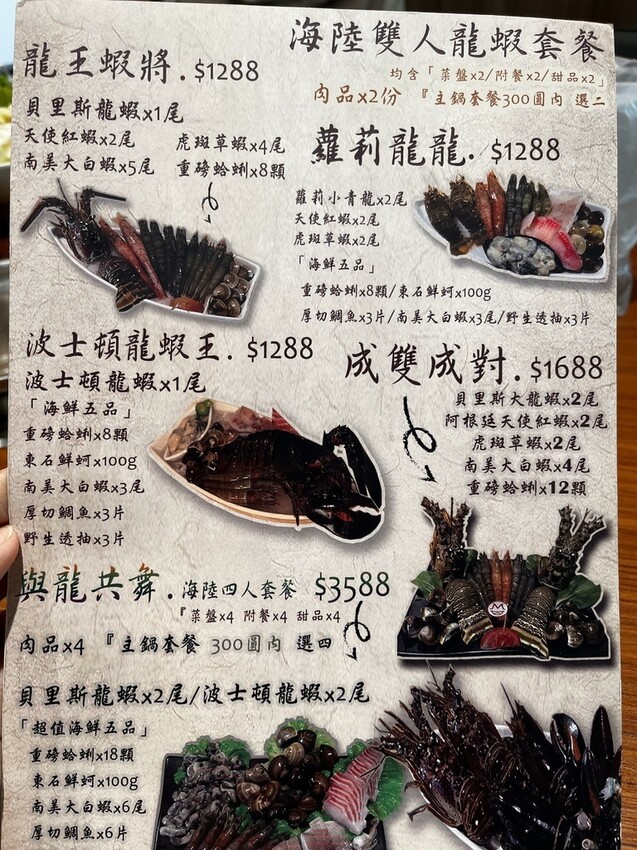 海陸雙人龍蝦套餐
均含「菜盤x2/附餐x2/甜品x2」
肉品x2份 『主鍋套餐300圓內 選二
龍王蝦將.$1288
貝里斯龍蝦x1尾
天使紅蝦x2尾 虎斑草蝦x4尾
南美大白蝦x5尾 重磅蛤蜊x8顆
蘿莉龍龍.$1288
蘿莉小青龍x2尾
天使紅蝦x2尾
虎斑草蝦x2尾
「海鮮五品」
重磅蛤蜊x8顆/東石鮮蚵x100g
厚切鯛魚x3片/南美大白蝦x3尾/野生透抽x3片
波士頓龍蝦王.$1288
波士頓龍蝦x1尾
「海鮮五品」
重磅蛤蜊x8顆
東石鮮蚵x100g
南美大白蝦x3尾
厚切鯛魚x3片
野生透抽x3片
成雙成對.$1688
貝里斯大龍蝦x2尾
阿根廷天使紅蝦x2尾
虎斑草蝦x2尾
南美大白蝦x4尾
重磅蛤蜊x12顆
與龍共舞.海陸四人套餐 $3588
『菜盤x4 附餐x4 甜品x4
肉品x4 『主鍋套餐 300圓內 選四
貝里斯龍蝦x2尾/波士頓龍蝦x2尾
「超值海鮮五品」
重磅蛤蜊x18顆
東石鮮蚵x100g
南美大白蝦x6尾
厚切鯛魚x6片